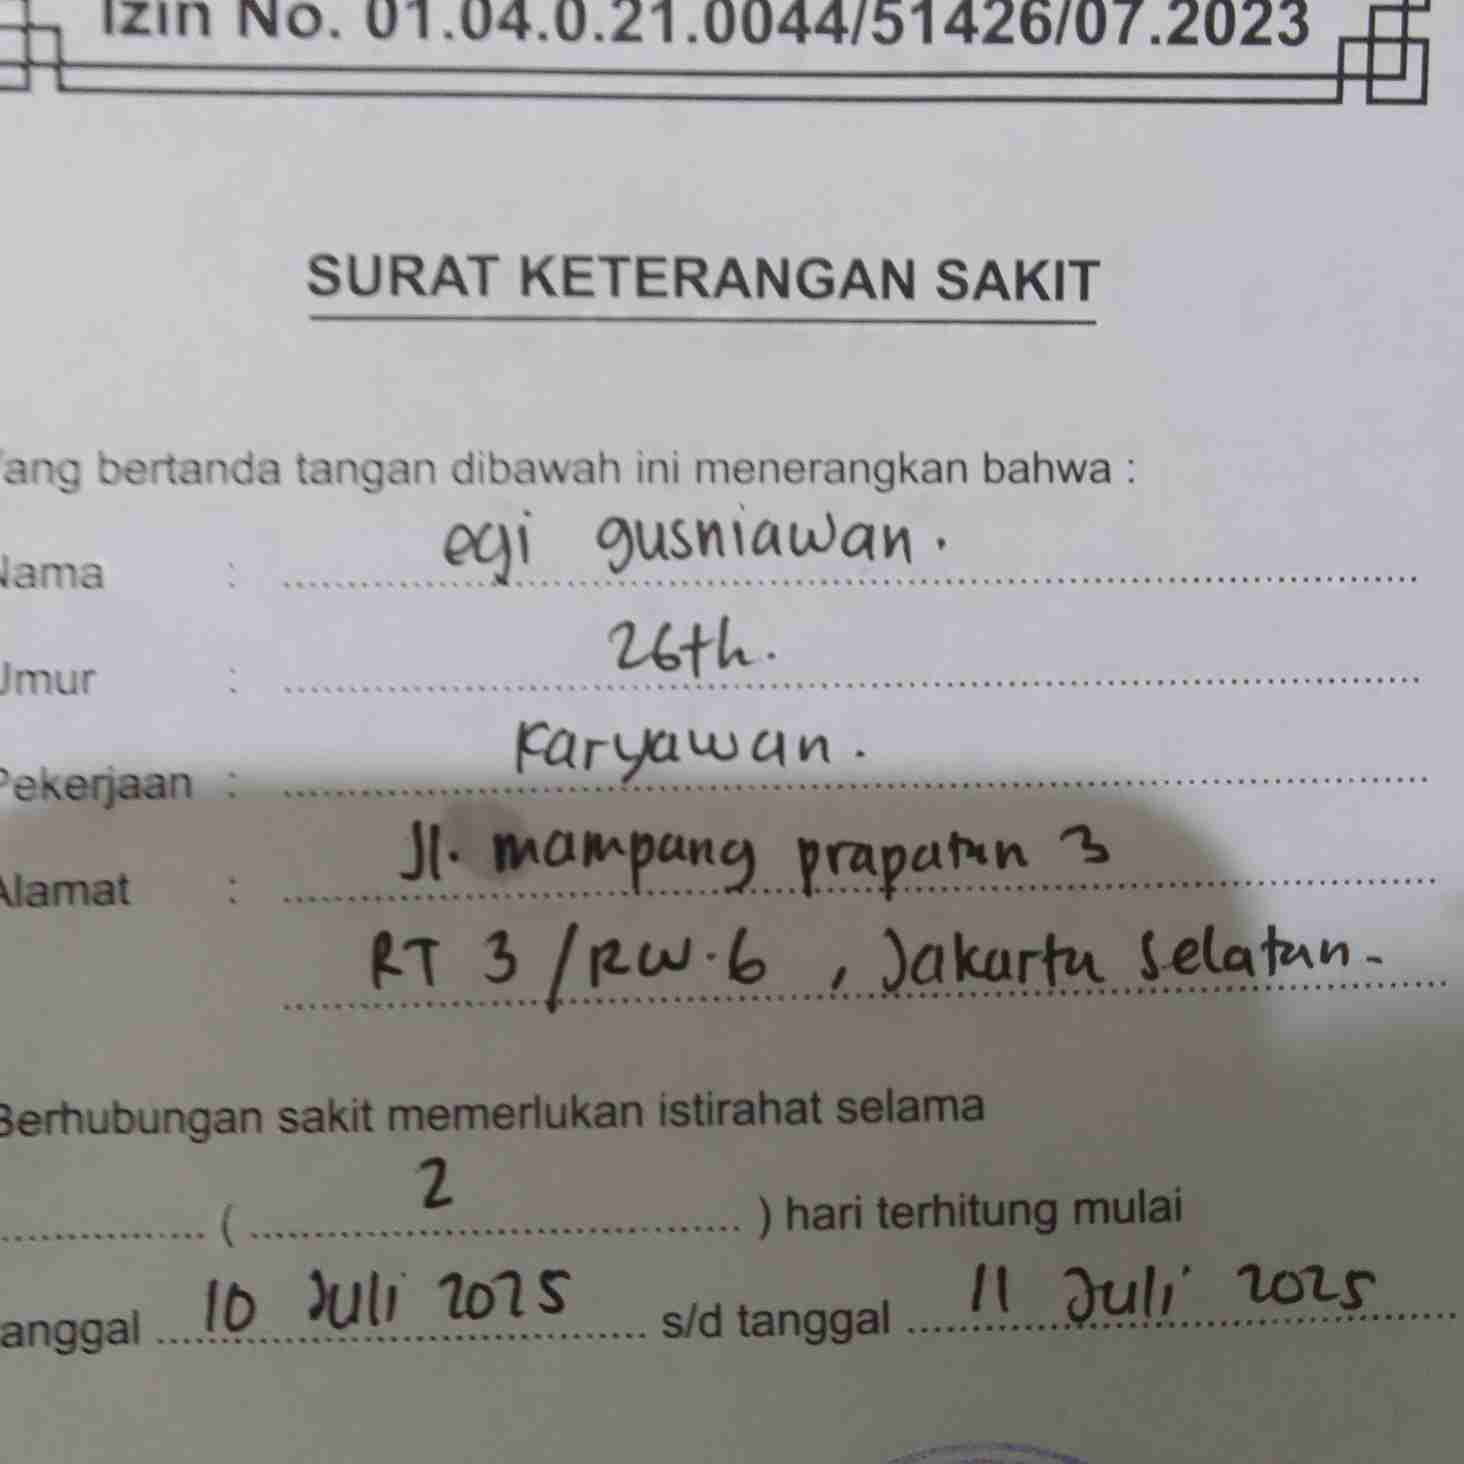 Izin No. 01.04.0.21.0044/51426/07.2023
SURAT KETERANGAN SAKIT
Yang bertanda tangan dibawah ini menerangkan bahwa :
Nama : egi gusniawan.
Umur : 26th.
Pekerjaan : Karyawan.
Alamat : Jl. mampang prapatan 3
RT 3 / RW. 6 , Jakarta Selatan.
Berhubungan sakit memerlukan istirahat selama
( 2 ) hari terhitung mulai
tanggal 10 Juli 2025 s/d tanggal 11 Juli 2025